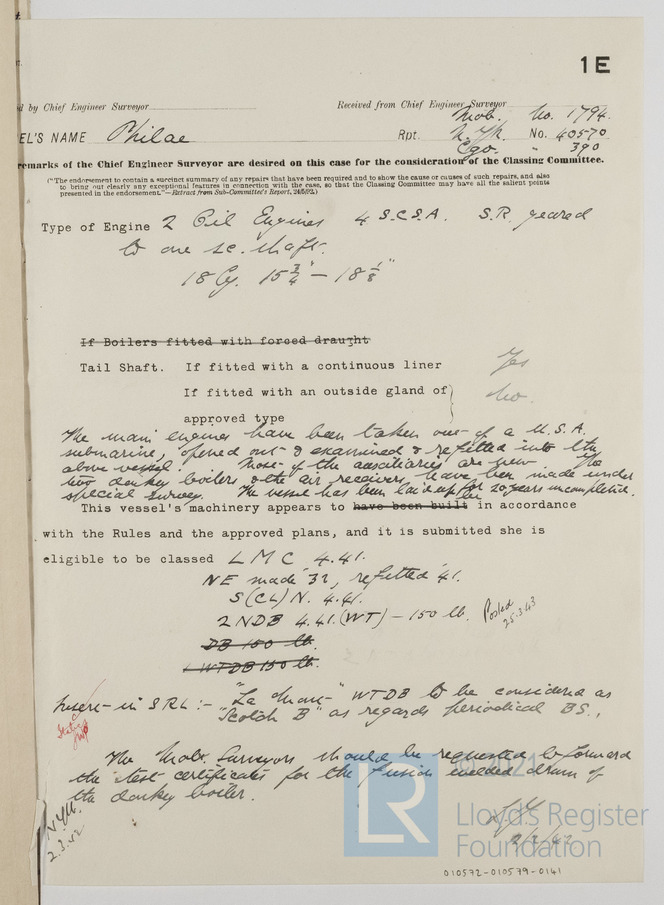 1E
d by Chief Engineer Surveyor Received from Chief Engineer Surveyor
Mob. No. 1794.
EL'S NAME Philae Rpt. N.Yk. No. 40570
Cgo. " 390
emarks of the Chief Engineer Surveyor are desired on this case for the consideration of the Classing Committee.
("The endorsement to contain a succinct summary of any repairs that have been required and to show the cause or causes of such repairs, and also
to bring out clearly any exceptional features in connection with the case, so that the Classing Committee may have all the salient points
presented in the endorsement."—Extract from Sub-Committee's Report, 24/5/92.)
Type of Engine 2 Oil Engines 4 S.C.S.A. S.R. geared
to one sc. shaft.
18 Cy. 15 3/4" — 18 1/8"
If Boilers fitted with forced draught
Tail Shaft. If fitted with a continuous liner Yes
If fitted with an outside gland of No.
approved type
The main engines have been taken out of a U.S.A.
submarine, opened out & examined & refitted into the
above vessel. Most of the auxiliaries are new. The
two donkey boilers & the air receivers have been made under
special survey. The vessel has been laid up for 20 years uncompleted.
This vessel's machinery appears to have been built be in accordance
with the Rules and the approved plans, and it is submitted she is
eligible to be classed LMC 4.41.
NE made '32, refitted '41.
S(CL)N. 4.41.
2NDB 4.41.(WT) — 150 lb. Posted 25.3.43
DB 150 lb.
WTDB 150 lb.
Insert in SRL :- "La Mont" WTDB to be considered as
"Scotch B" as regards periodical BS.,
The Mob. Surveyors should be requested to forward
the test certificates for the fusion welded drum of
the donkey boiler.
N.Yk.
2.3.42
© 2021
LR
Lloyd's Register
Foundation
010572-010579-0141